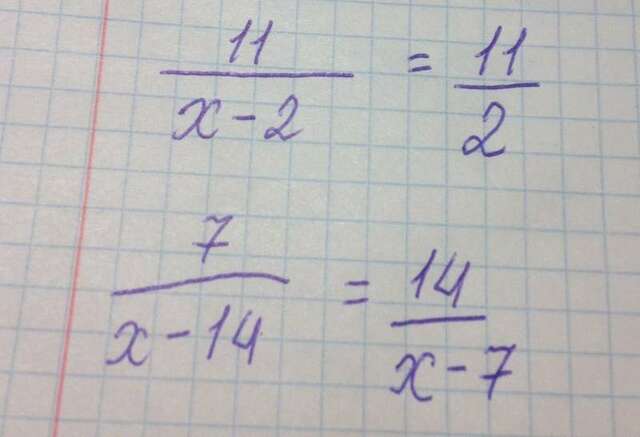 11/(x-2) = 11/2
7/(x-14) = 14/(x-7)